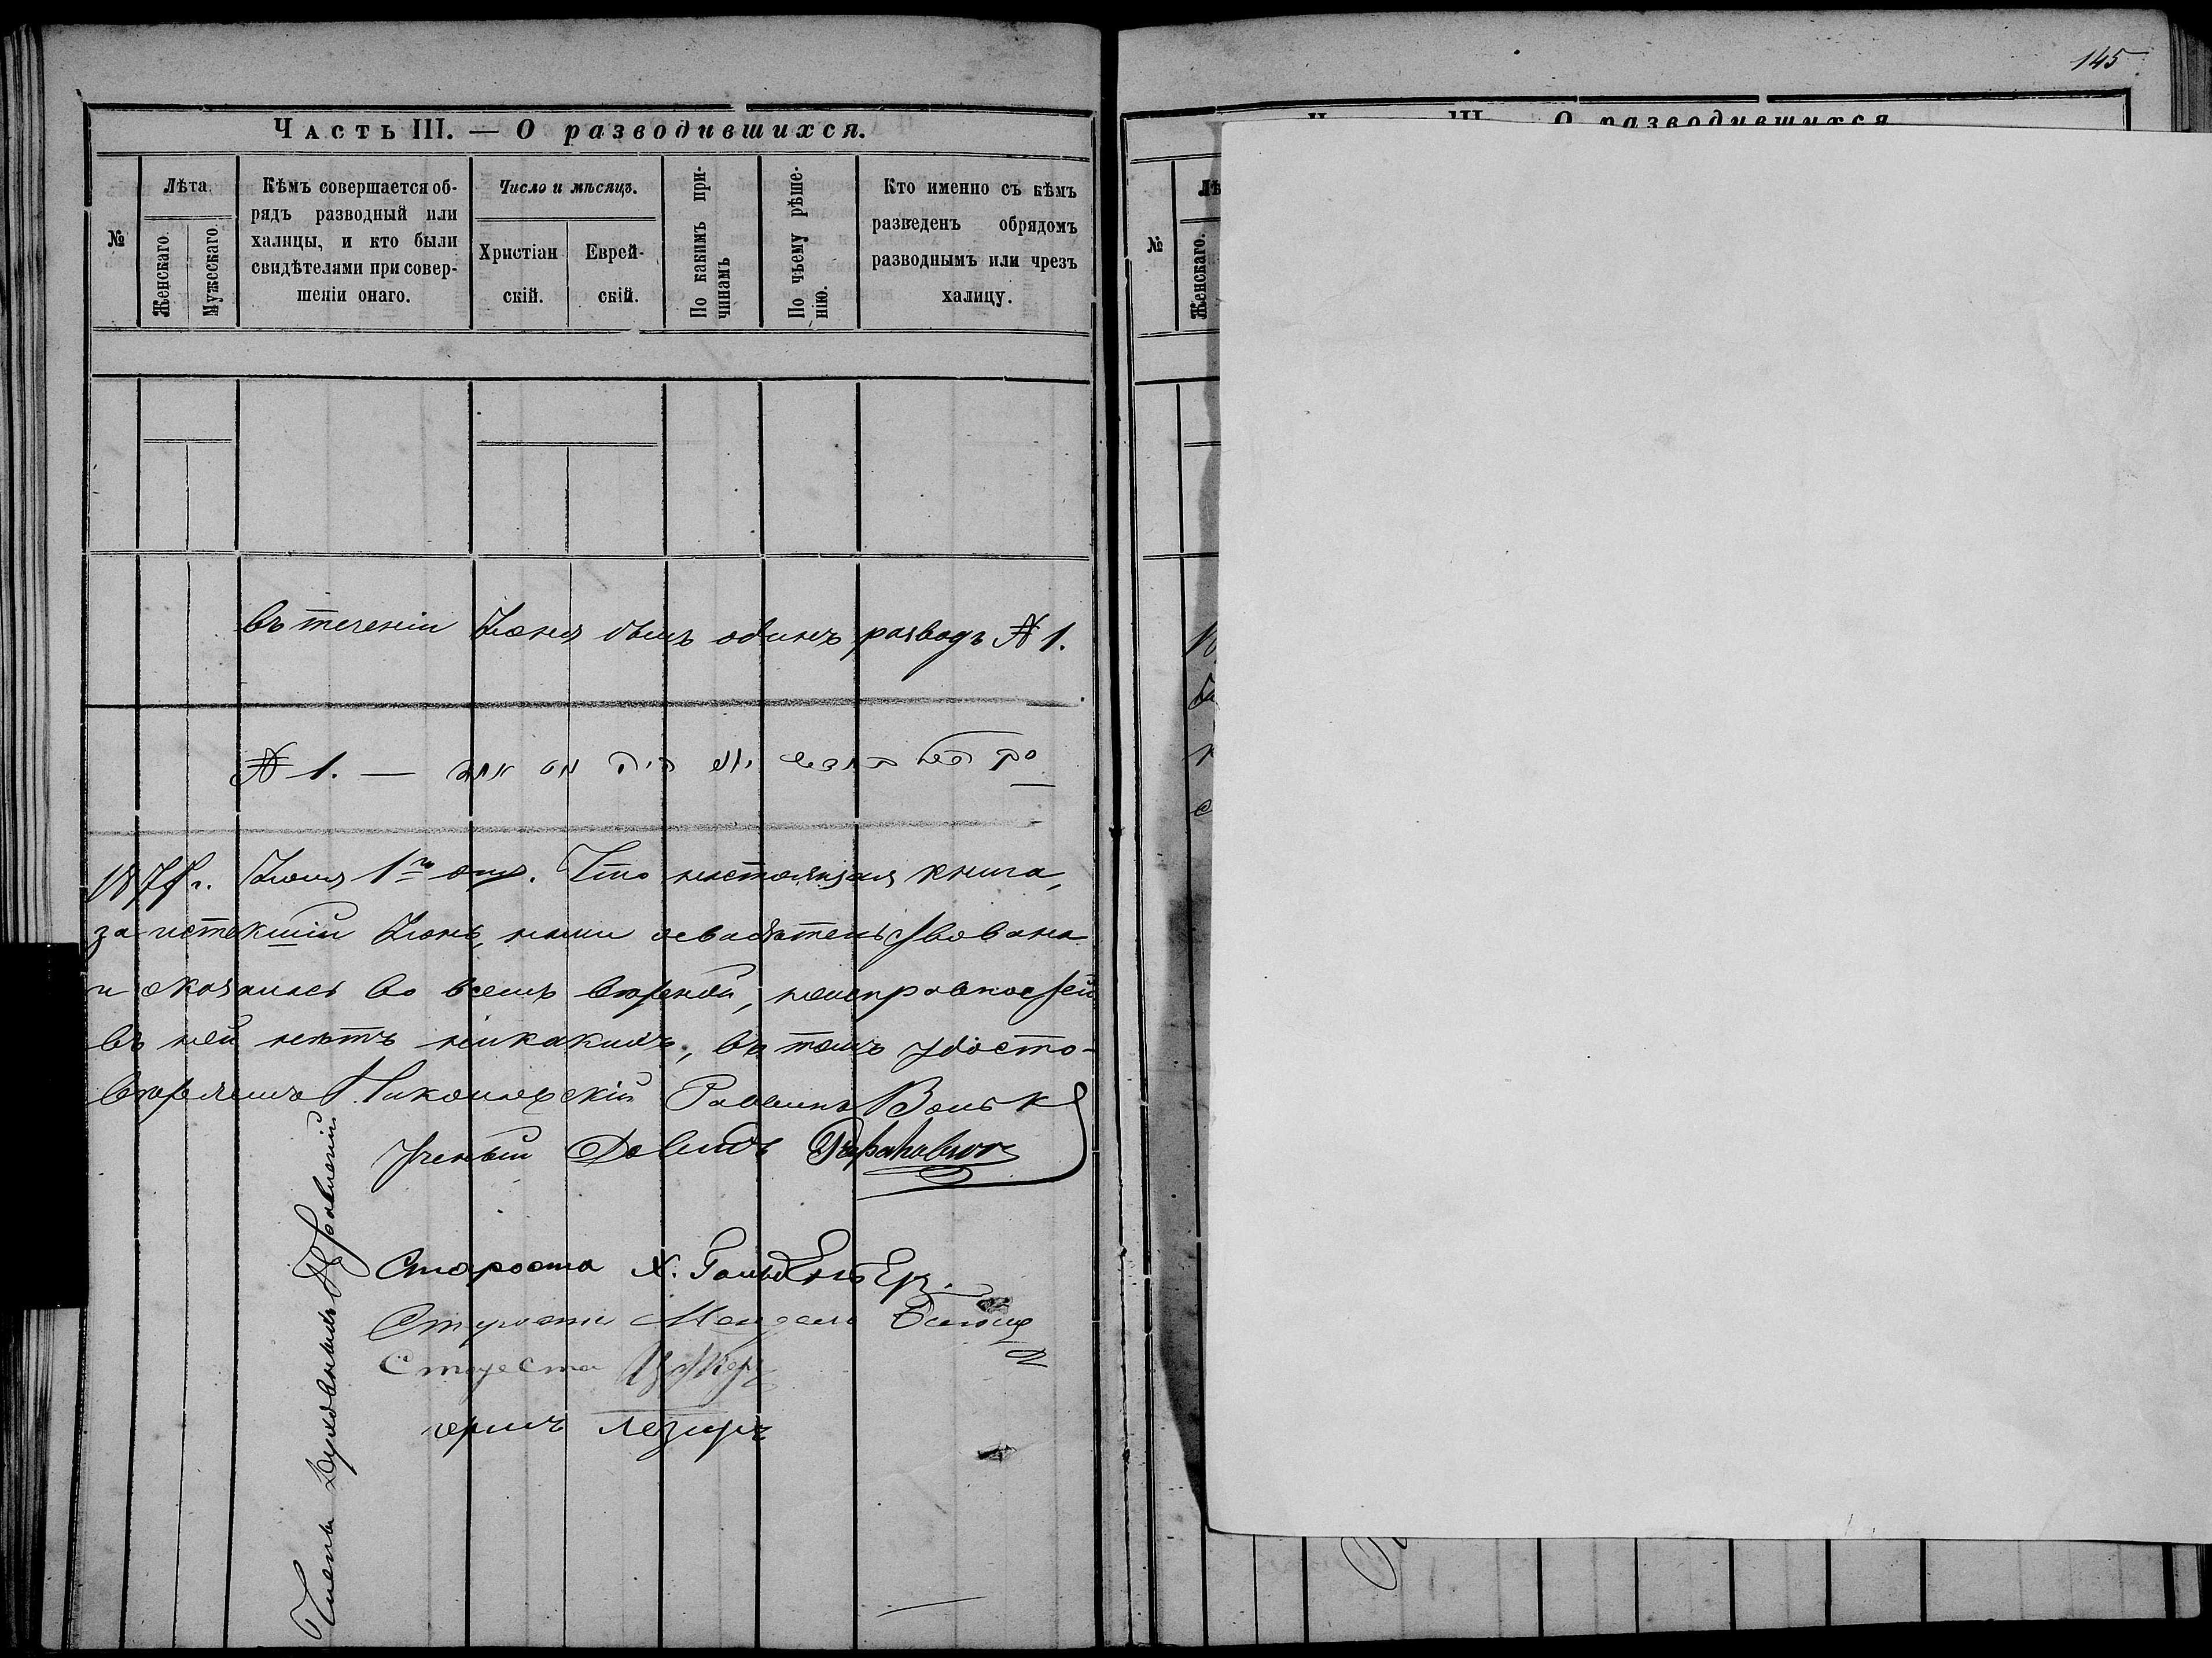 145
Часть III. — О разводившихся.
№
Лѣта.
Женскаго.
Мужескаго.
Кѣмъ совершается об-
рядъ разводный или
халицы, и кто были
свидѣтелями при совер-
шеніи онаго.
Число и мѣсяцъ.
Христіан
скій.
Еврей-
скій.
По какимъ при-
чинамъ
По чьему рѣше-
нію.
Кто именно съ кѣмъ
разведенъ обрядомъ
разводнымъ или чрезъ
халицу.
Въ теченіи Іюня былъ одинъ разводъ № 1.
№ 1. —
Іюля 1го дня. Что настоящая книга,
за истекшій Іюнь, нами освидѣтельствована
и оказалась во всемъ вѣрной, неисправностей
въ ней нѣтъ никакихъ, въ томъ удосто-
вѣряемъ Николаевскій Раввинъ Волькъ
Ученый Давидъ
Члены Духовныхъ Правленій
Староста Х. Гольденберг.
Староста Мендель
Староста
О разводившихся
№
Женскаго.